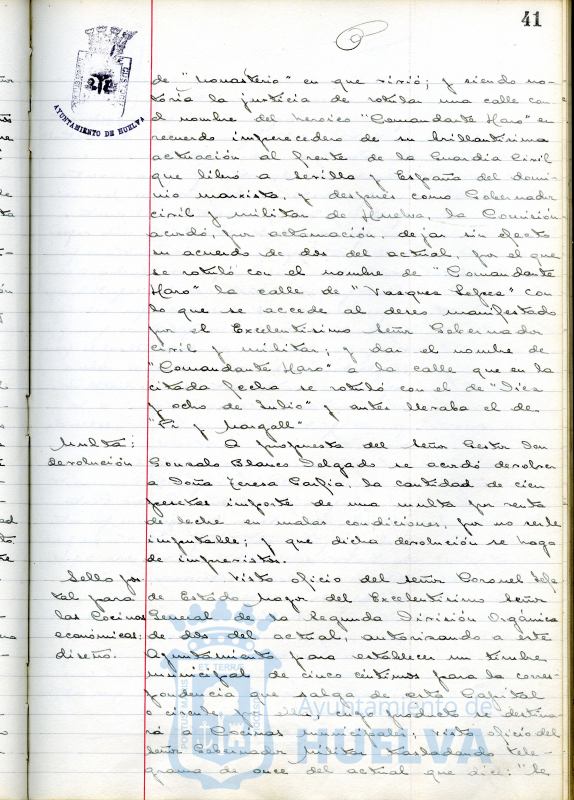 41
AYUNTAMIENTO DE HUELVA
de "Monasterio" en que vivió; y siendo no-
toria la justicia de rotular una calle con
el nombre del heroico "Comandante Haro" en
recuerdo imperecedero de su brillantísima
actuación al frente de la Guardia Civil
que libró a Sevilla y España del domi-
nio marxista, y después como Gobernador
civil y militar de Huelva, la Comisión
acordó, por aclamación, dejar sin efecto
su acuerdo de dos del actual, por el que
se rotuló con el nombre de "Comandante
Haro" la calle de "Vasquez López" con
lo que se accede al deseo manifestado
por el Excelentísimo Señor Gobernador
civil y militar; y dar el nombre de
"Comandante Haro" a la calle que en la
citada fecha se rotuló con el de "Diez
y ocho de Julio" y antes llevaba el de
"Pi y Margall"
Multa:
devolución
A propuesta del Señor Gestor Don
Gonzalo Blanco Delgado se acordó devolver
a Doña Teresa la cantidad de cien
pesetas importe de una multa por venta
de leche en malas condiciones, por no serle
imputable; y que dicha devolución se haga
de imprevistos.
Sello pos-
tal para
las Cocinas
económicas:
diseño.
Visto oficio del Señor Coronel Jefe
de Estado Mayor del Excelentísimo Señor
General de la Segunda División Orgánica
de dos del actual, autorizando a este
Ayuntamiento para establecer un timbre
municipal de cinco céntimos para la corres-
pondencia que salga de esta Capital
o circule por ella, cuyo producto se destina-
rá a Cocinas municipales; visto oficio del
Señor Gobernador Militar trasladando tele-
grama de once del actual que dice: "Le
Ayuntamiento de
HUELVA